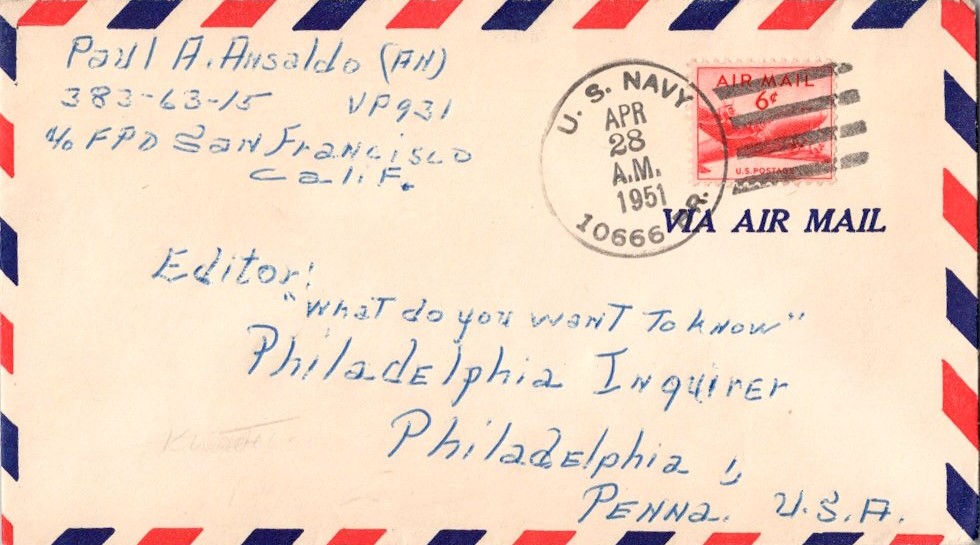 Paul A. Ansaldo (AN)
383-63-15 VP931
c/o FPO San Francisco
Calif.
U. S. NAVY
APR
28
A.M.
1951
10666 BR.
AIR MAIL
6¢
U.S. POSTAGE
VIA AIR MAIL
Editor:
"What do you want To know"
Philadelphia Inquirer
Philadelphia 1,
Penna. U.S.A.